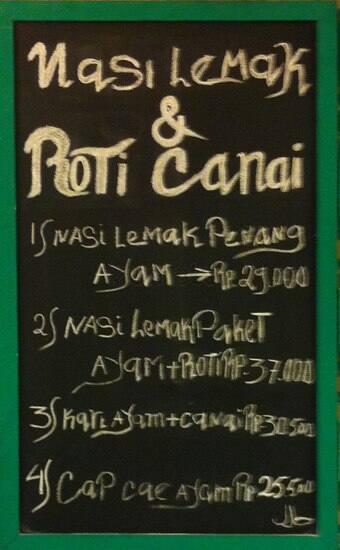 Nasi Lemak
&
Roti Canai
1) Nasi Lemak Penang
Ayam → Rp. 29.000
2) Nasi Lemak Paket
Ayam + Roti Rp. 37.000
3) Kari Ayam + Canai Rp 30.500
4) Cap cae Ayam Rp 25.500